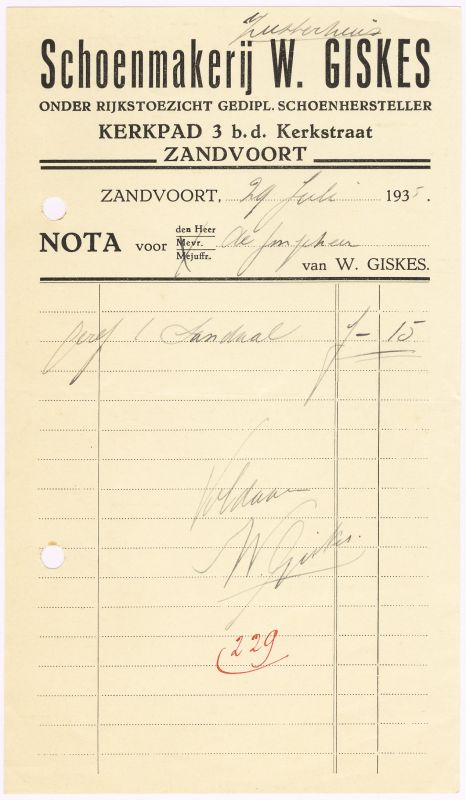 Zusterhuis
Schoenmakerij W. GISKES
ONDER RIJKSTOEZICHT GEDIPL. SCHOENHERSTELLER
KERKPAD 3 b.d. Kerkstraat
ZANDVOORT
ZANDVOORT, 29 Juli 1935.
NOTA voor den Heer
Mevr.
Mejuffr.
de
van W. GISKES.
1 Sandaal f - 15
Voldaan
W. Giskes.
229